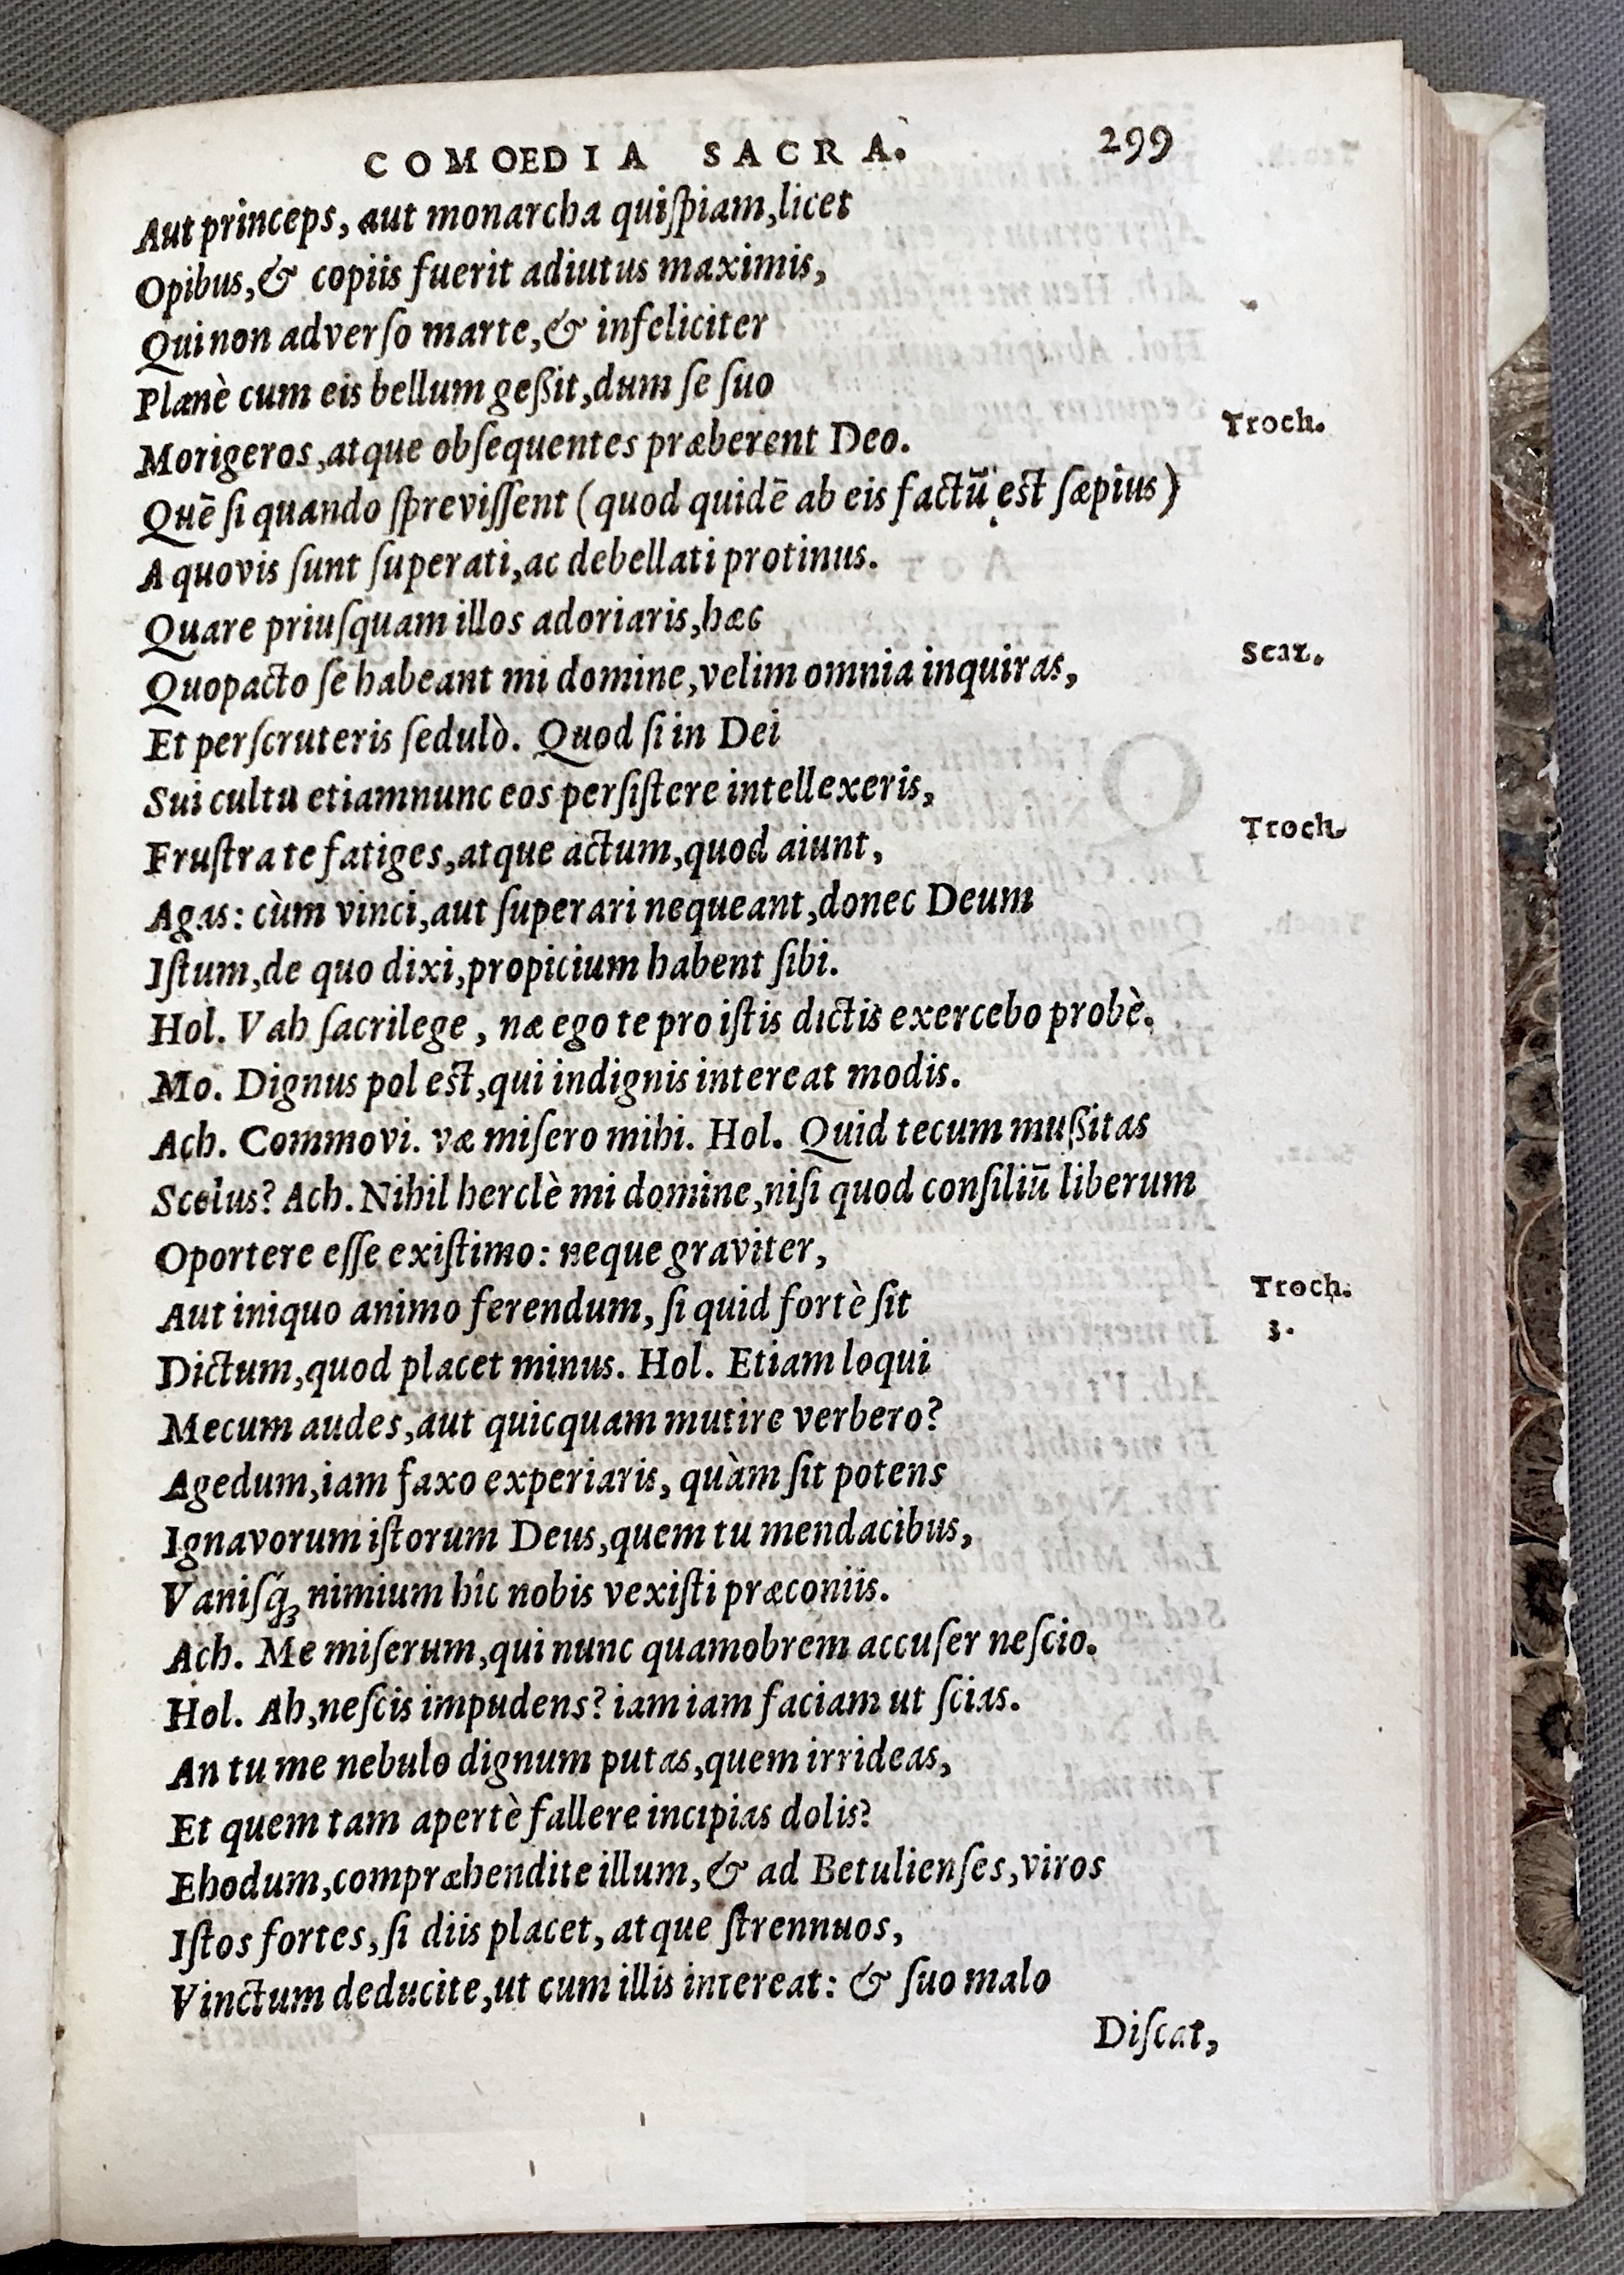 COMOEDIA SACRA. 299
Aut princeps, aut monarcha quiſpiam, licet
Opibus, & copiis fuerit adiutus maximis,
Qui non adverſo marte, & infeliciter
Planè cum eis bellum geßit, dum ſe ſuo
Morigeros, atque obſequentes præberent Deo. Troch.
Quē ſi quando ſpreviſſent (quod quidē ab eis factū est ſæpius)
A quovis ſunt ſuperati, ac debellati protinus.
Quare priuſquam illos adoriaris, hæc
Quopacto ſe habeant mi domine, velim omnia inquiras, Scaz.
Et perſcruteris ſedulò. Quod ſi in Dei
Sui cultu etiamnunc eos perſiſtere intellexeris, Troch.
Fruſtra te fatiges, atque actum, quod aiunt,
Agas: cùm vinci, aut ſuperari nequeant, donec Deum
Iſtum, de quo dixi, propicium habent ſibi.
Hol. Vah ſacrilege, næ ego te pro iſtis dictis exercebo probè.
Mo. Dignus pol est, qui indignis intereat modis.
Ach. Commovi. væ miſero mihi. Hol. Quid tecum mußitas
Scelus? Ach. Nihil herclè mi domine, niſi quod conſiliū liberum
Oportere eſſe exiſtimo: neque graviter,
Aut iniquo animo ferendum, ſi quid fortè ſit Troch.
3.
Dictum, quod placet minus. Hol. Etiam loqui
Mecum audes, aut quicquam mutire verbero?
Agedum, iam faxo experiaris, quàm ſit potens
Ignavorum iſtorum Deus, quem tu mendacibus,
Vaniſq́ꝫ nimium hîc nobis vexiſti præconiis.
Ach. Me miſerum, qui nunc quamobrem accuſer neſcio.
Hol. Ah, neſcis impudens? iam iam faciam ut ſcias.
An tu me nebulo dignum putas, quem irrideas,
Et quem tam apertè fallere incipias dolis?
Ehodum, compræhendite illum, & ad Betulienſes, viros
Iſtos fortes, ſi diis placet, atque ſtrennuos,
Vinctum deducite, ut cum illis intereat: & ſuo malo
Diſcat,